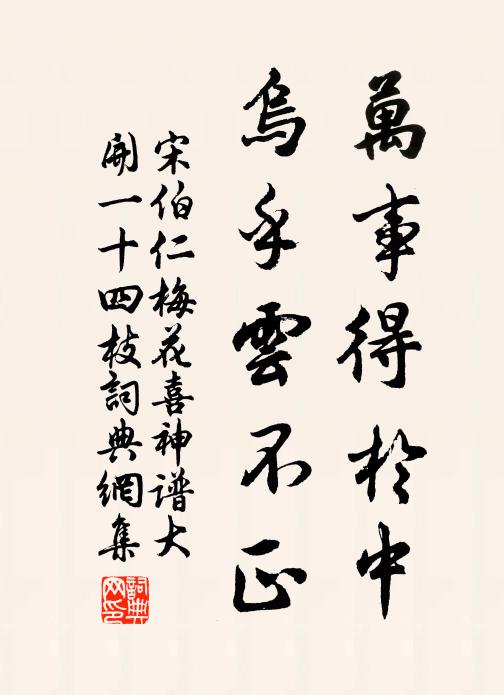 萬事得於中
烏乎雲不正
宋伯仁梅花喜神譜大
開一十四枝詞典網集
詞典
网印